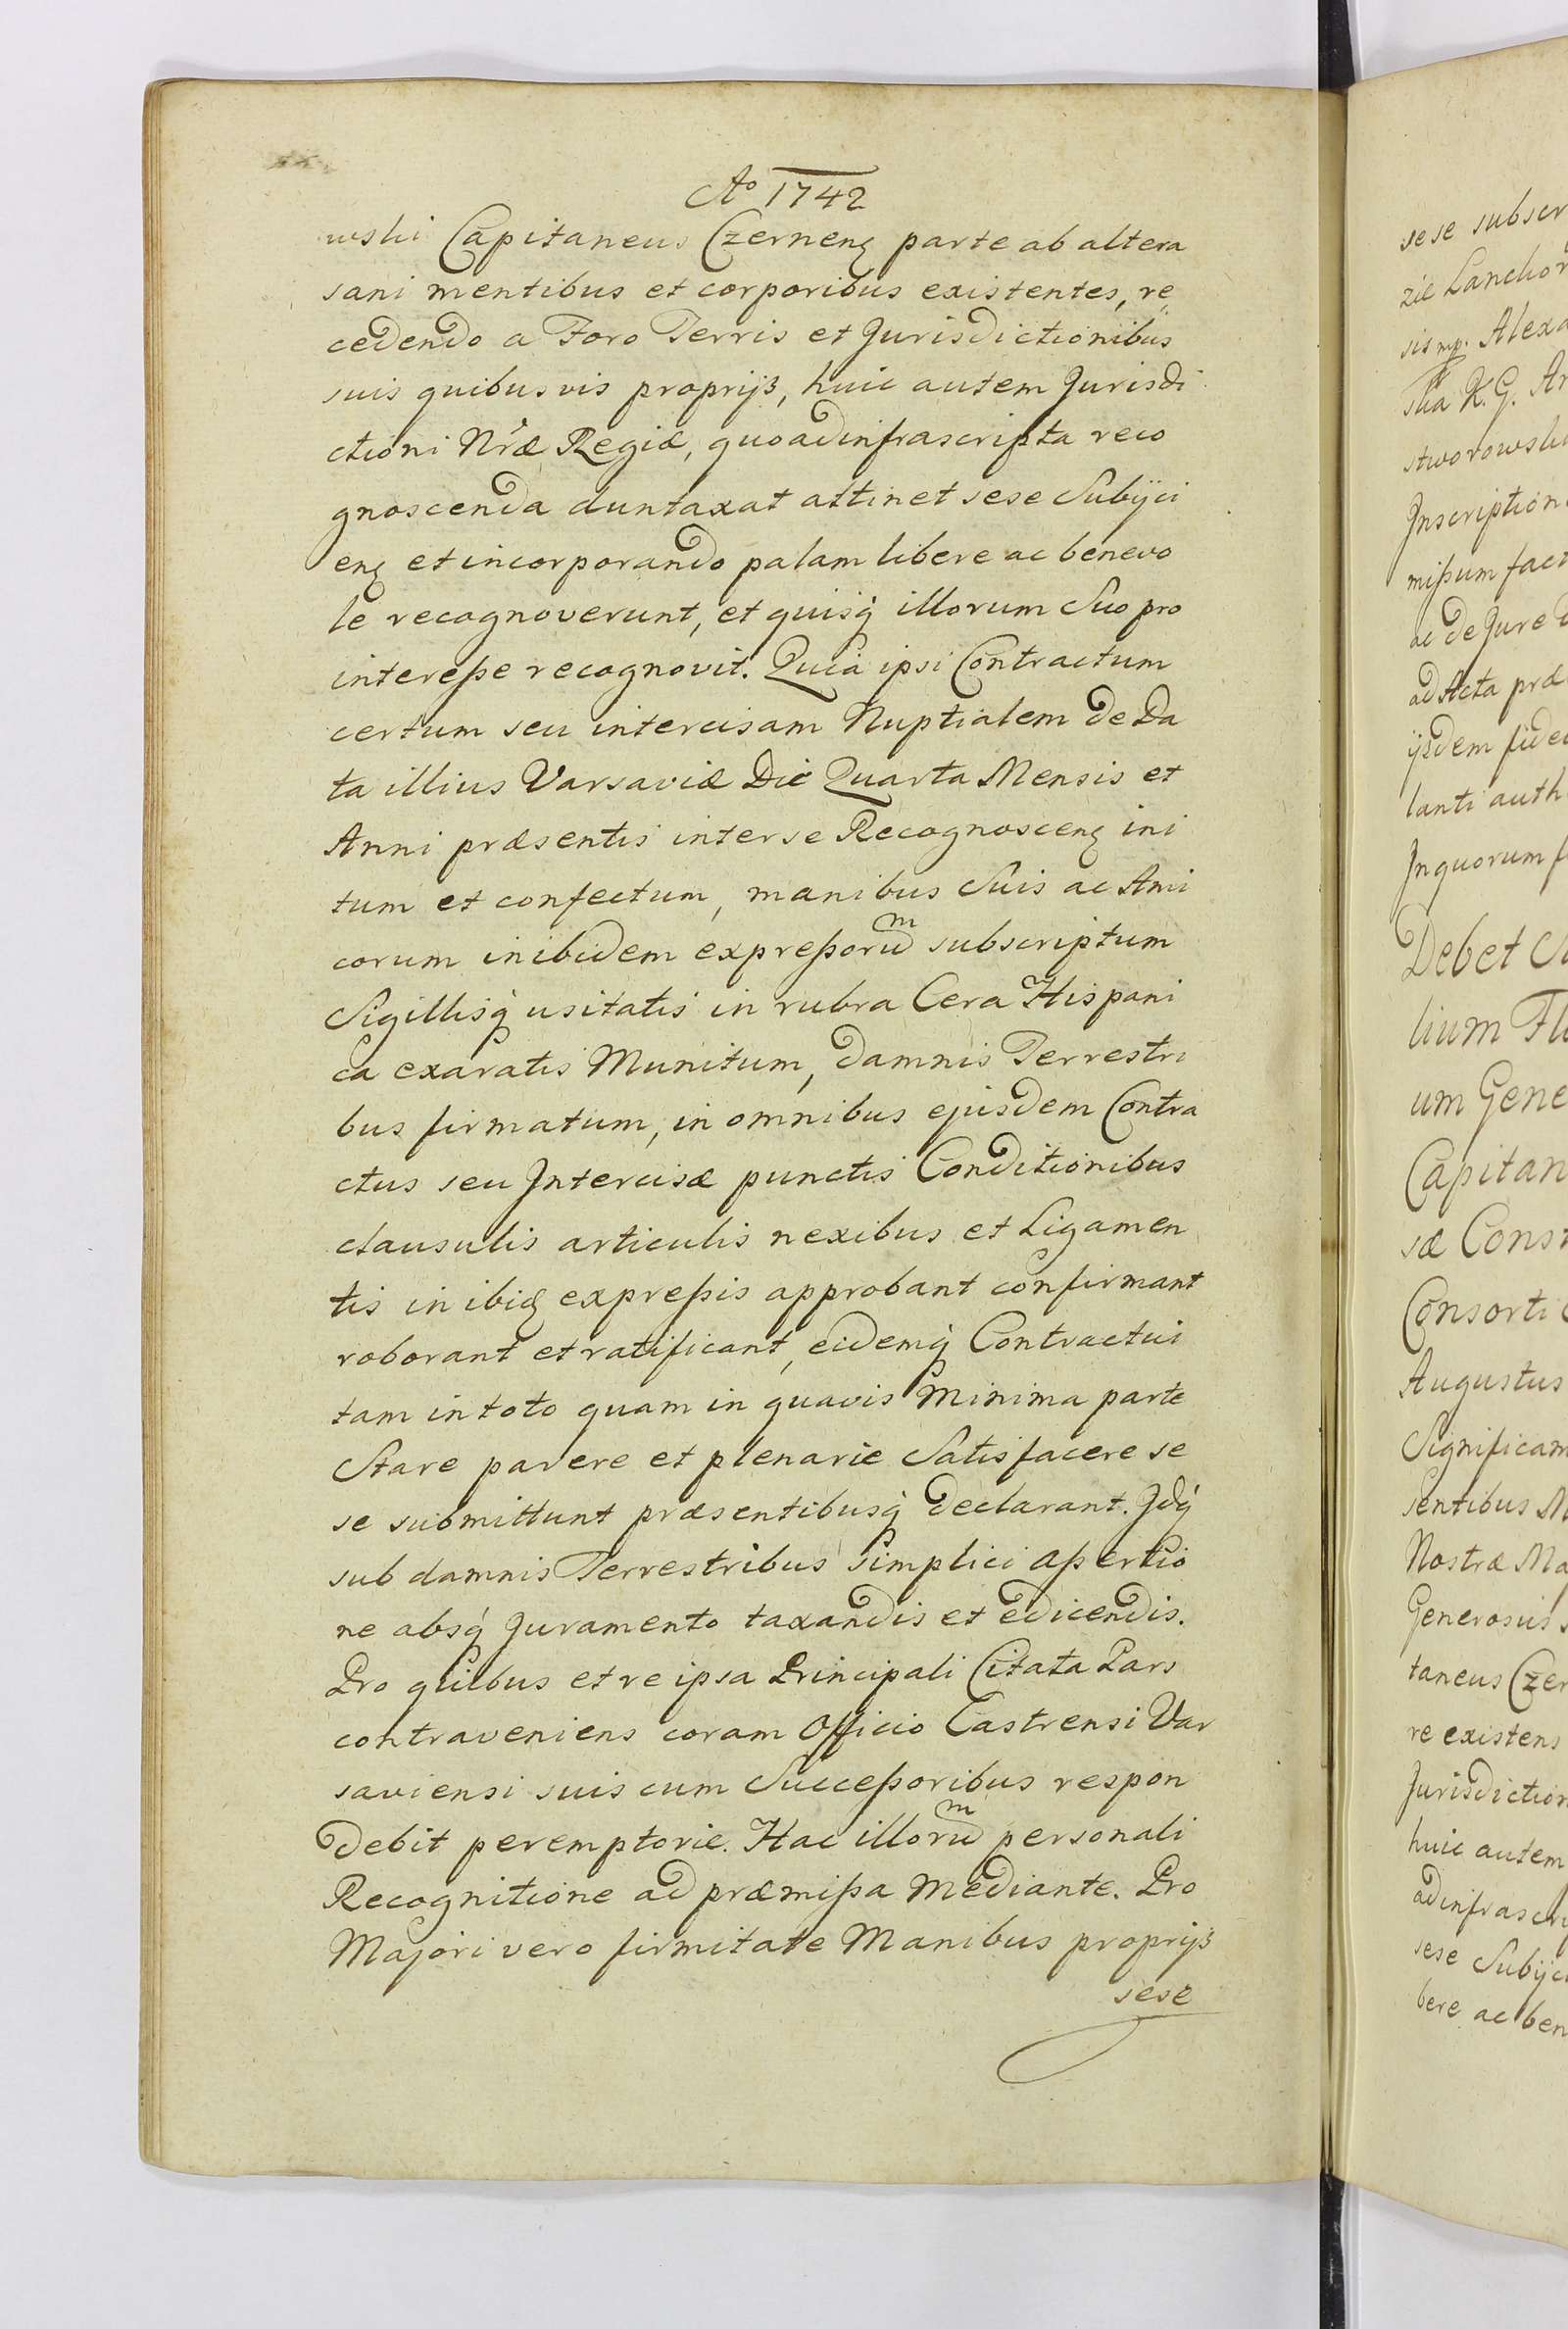 Aº 1742
wski Capitaneus Czerneng parte ab altera
sani mentibus et corporibus existentes, re
cedendo a Foro Terris et Jurisdictionibus
suis quibusvis proprijs, huic autem Jurisdi
ctioni Nr̃æ Regiæ, quoadinfrascripta reco
gnoscenda duntaxat attinet sese Subijci
enȩ et incorporando palam libere ac benevo
le recognoverunt, et quisq́ illorum Suo pro
interesse recognovit. Quia ipsi Contractum
certum seu intercisam Nuptialem de Da
ta illius Varsaviæ Die Quarta Mensis et
Anni præsentis inter se Recognoscenȩ ini
tum et confectum, manibus Suis ac Ami
corum inibidem expressorum subscriptum
Sigillisq́ usitatis in rubra Cera Hispani
ca exaratis Munitum, damnis Terrestri
bus firmatum, in omnibus ejusdem Contra
ctus seu Intercisæ punctis Conditionibus
clausulis articulis nexibus et Ligamen
tis in ibidȩ expressis approbant confirmant
roborant et ratificant, eidemq́ Contractui
tam in toto quam in quavis Minima parte
Stare parere et plenarie Satisfacere se
se submittunt præsentibusq́ declarant. Idq́
sub damnis Terrestribus simplici assertio
ne absq́ Juramento taxandis et edicendis.
Pro quibus et re ipsa Principali Citata Pars
contraveniens coram Officio Castrensi Var
saviensi suis cum Successoribus respon
debit peremptorie. Hac illorum personali
Recognitione ad præmissa Mediante. Pro
Majori vero firmitate Manibus proprijs
sese
sese subscr
zie Lancko
sis mp. Alexa
ska K. G. Ar
stworowsk
Inscription
missum fact
ac de Jure
ad Acta præ
ijsdem fide
lanti auth
In quorum f
Debet
lium
um Gene
Capitan
sæ Cons
Consorti
Augustus
Significam
sentibus
Nostræ Ma
Generosus
taneus Czer
re existens
Jurisdiction
huic autem
adinfrascri
sese Subijci
bere ac ben